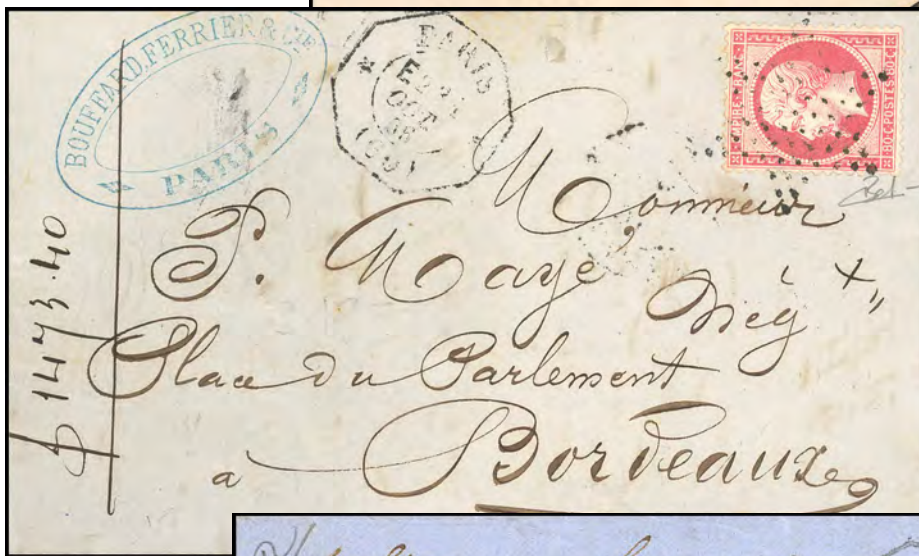 BOUFFARD, FERRIER & CIE
PARIS
PARIS
E2
OCT
(60)
EMPIRE FRANC
80 C POSTES 80 C
Monsieur
P. Mayé Nég
Place du Parlement
a Bordeaux
1473.40